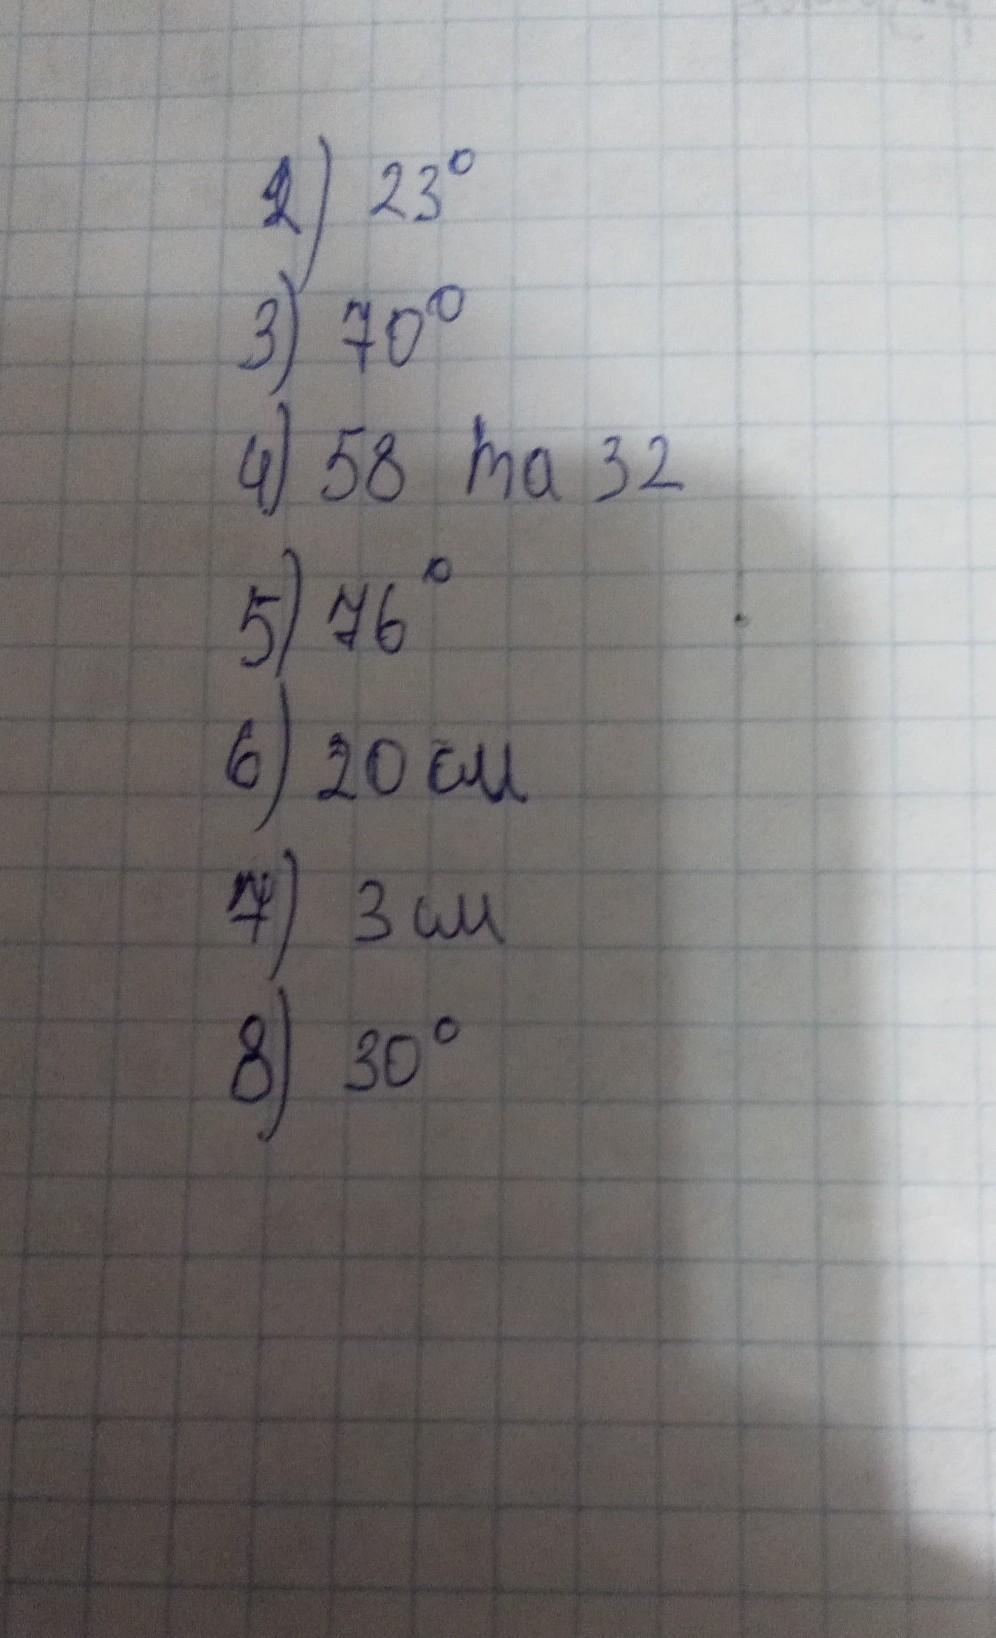 2) 23°
3) 70°
4) 58 та 32
5) 76°
6) 20 см
7) 3 см
8) 30°